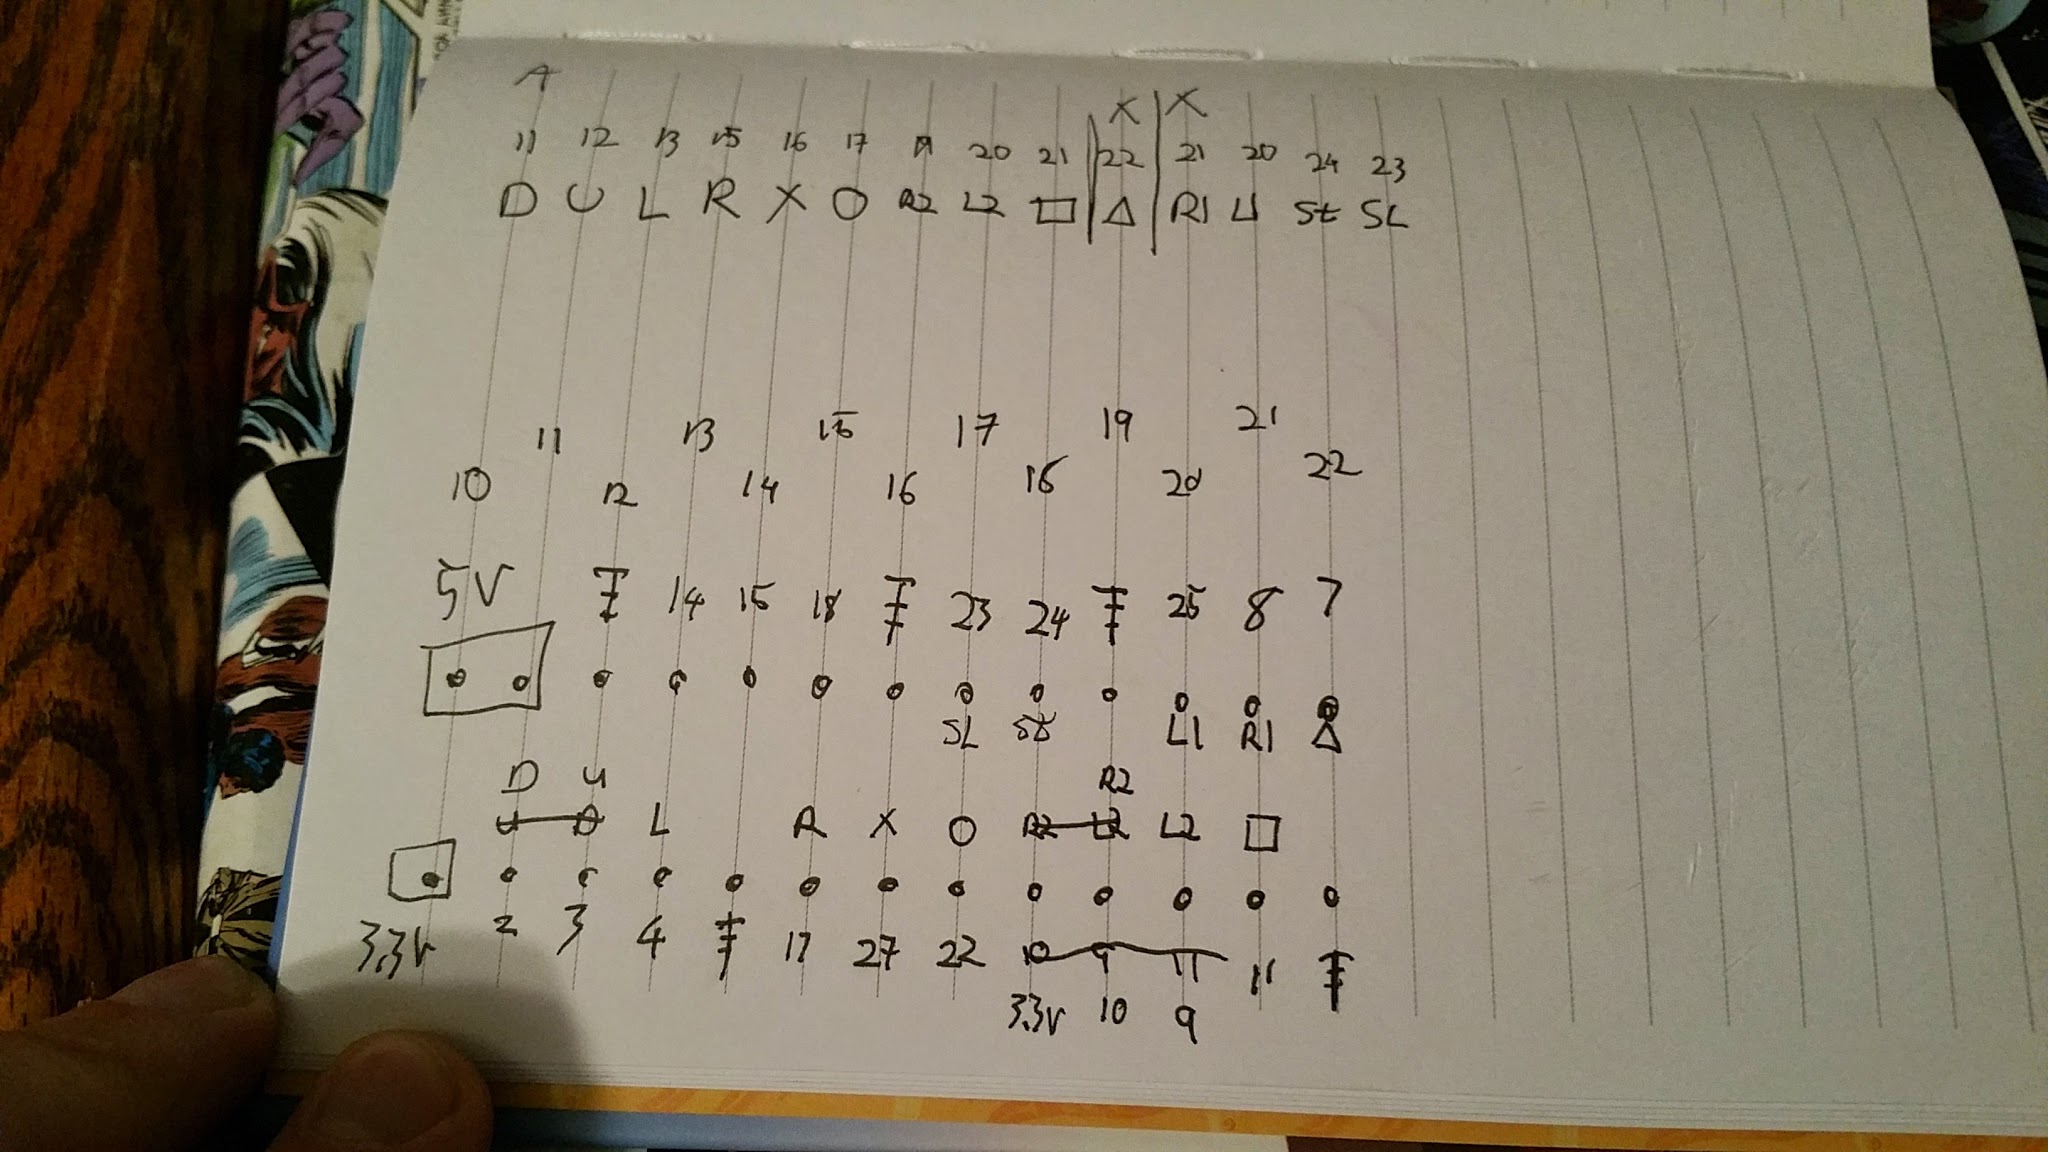 A
X X
11 12 13 15 16 17 19 20 21 22 21 20 24 23
D U L R X O R2 L2 □ △ R1 L1 St SL
11 13 15 17 19 21
10 12 14 16 18 20 22
5V 14 15 18 23 24 25 8 7
SL St L1 R1 △
D U R2
U D L R X O R2 L2 L2 □
3.3V 2 3 4 17 27 22 10 9 11 11
3.3V 10 9